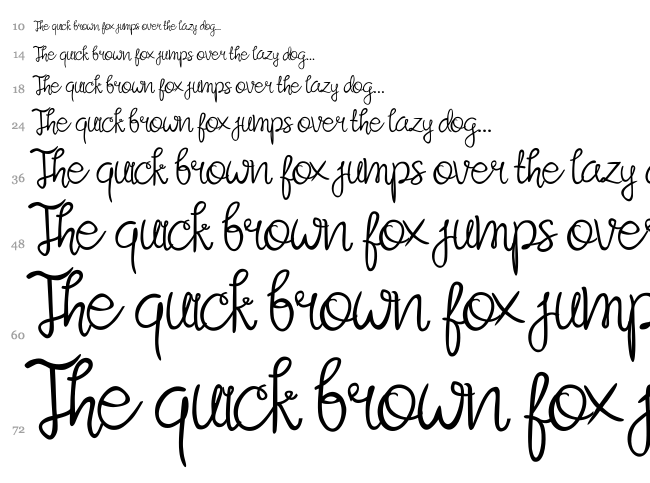 10 The quick brown fox jumps over the lazy dog...
14 The quick brown fox jumps over the lazy dog...
18 The quick brown fox jumps over the lazy dog...
24 The quick brown fox jumps over the lazy dog...
36 The quick brown fox jumps over the lazy
48 The quick brown fox jumps over
60 The quick brown fox jump
72 The quick brown fox j